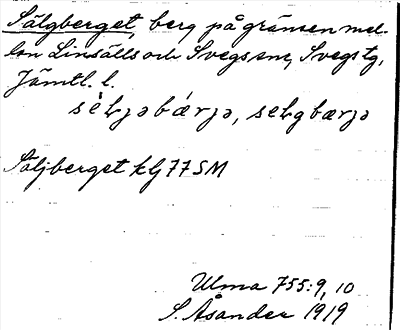 Sälgberget, berg på gränsen mel-
lan Linsälls och Svegs sne, Svegs tg,
Jämtl. l.
Säljberget klj 77 SM
Ulma 755:9, 10
S. Åsander 1919